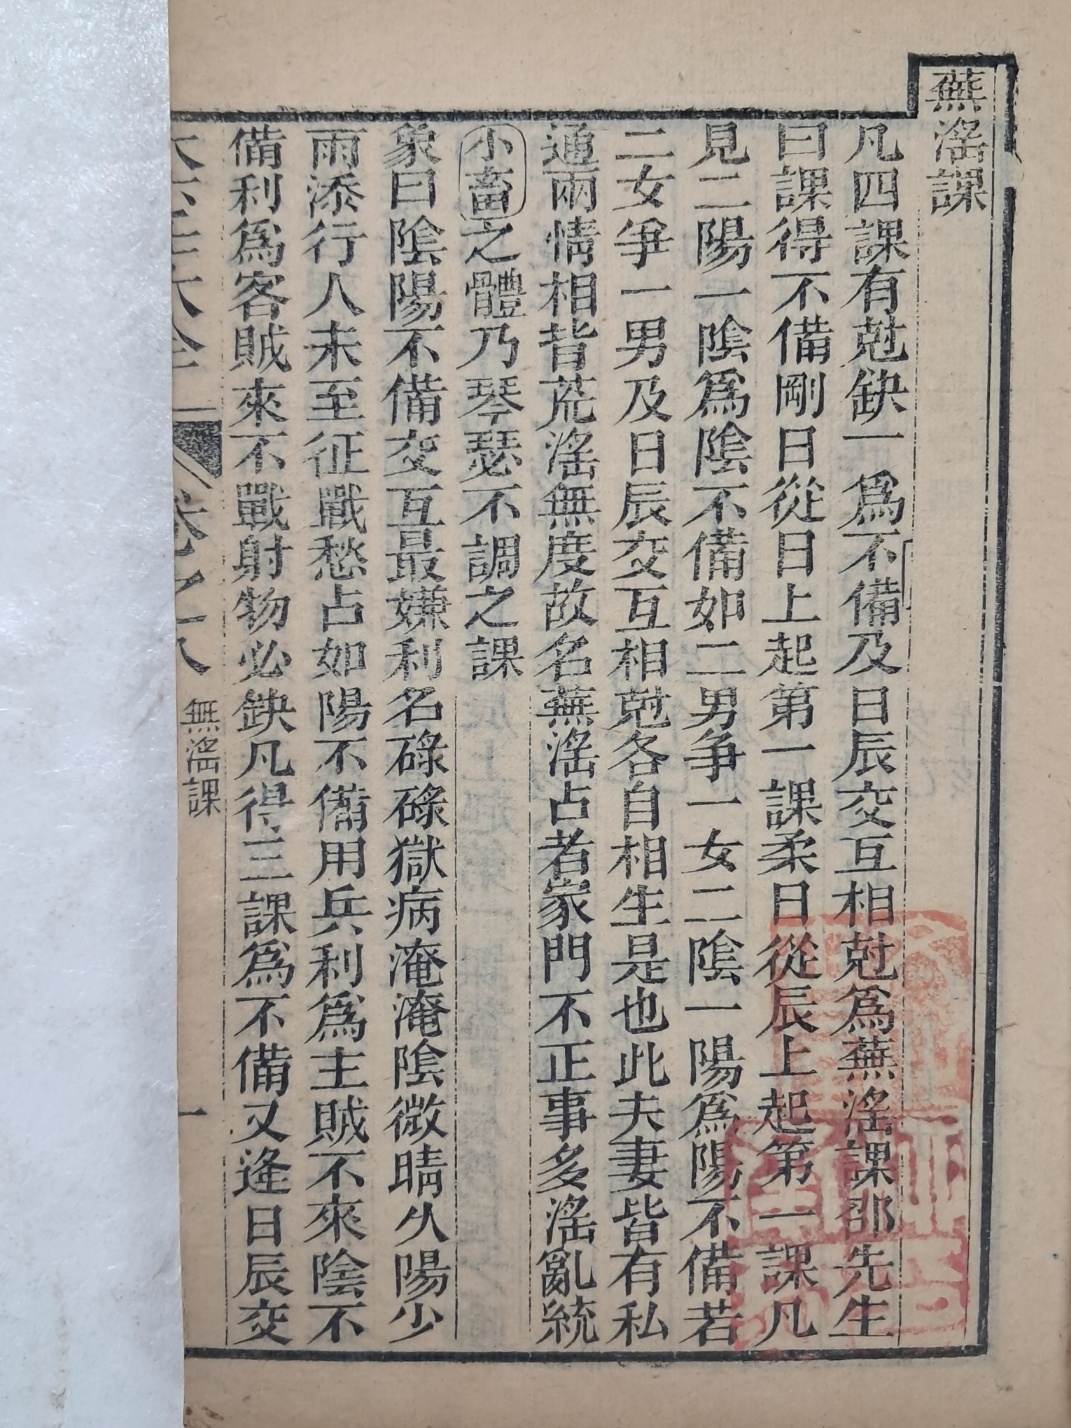 蕪滛課
凡四課有尅缺一爲不備及日辰交互相尅爲蕪滛課邵先生
曰課得不備剛日從日上起第一課柔日從辰上起第一課凡
見二陽一陰爲陰不備如二男争一女二陰一陽爲陽不備若
二女爭一男及日辰交互相尅各自相生是也此夫妻皆有私
通兩情相背荒滛無度故名蕪滛占者家門不正事多滛亂統
小畜之體乃琴瑟不調之課
象曰陰陽不備交互最嫌利名碌碌獄病淹淹陰微晴久陽少
雨添行人未至征戰愁占如陽不備用兵利爲主賊不來陰不
備利爲客賊來不戰射物必缺凡得三課爲不備又逢日辰交
大六壬大全 卷之八 無滛課 一